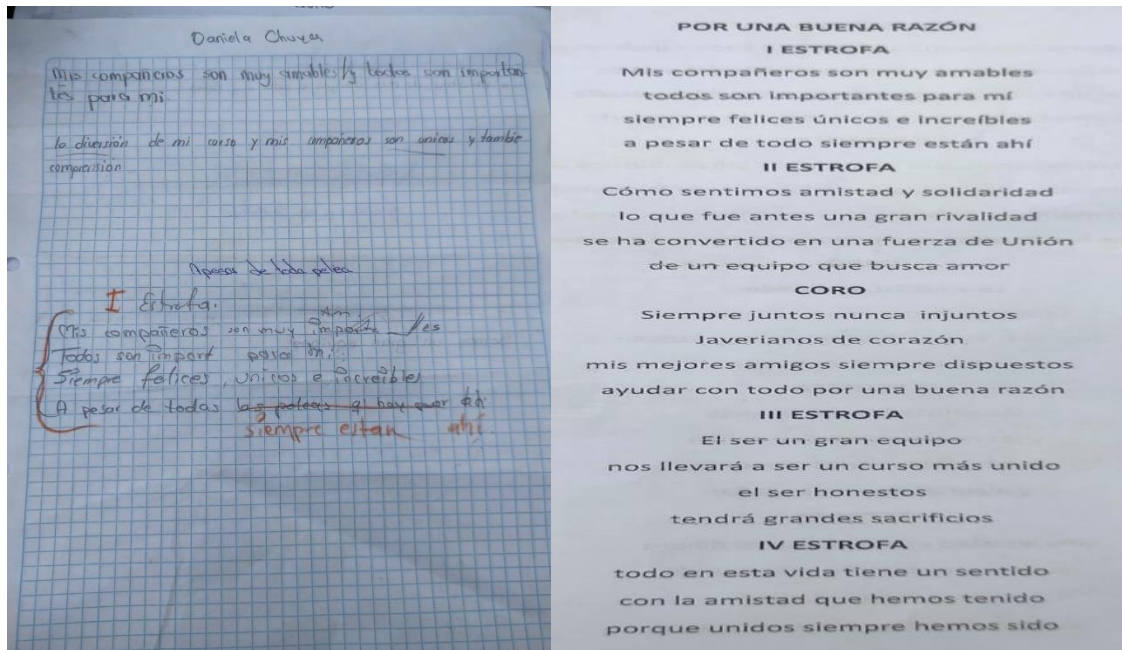 Daniela
Mis compañeros son muy amables / y todos son importan-
tes para mi
la diversión de mi curso y mis compañeros son unicos y tambie
Apesar de toda pelea
I Estrofa.
Mis compañeros son muy import es
Todos son import para mi
Siempre felices, unicos e increibles
A pesar de todas las peleas q hay
siempre estan ahí.
POR UNA BUENA RAZÓN
I ESTROFA
Mis compañeros son muy amables
todos son importantes para mí
siempre felices únicos e increíbles
a pesar de todo siempre están ahí
II ESTROFA
Cómo sentimos amistad y solidaridad
lo que fue antes una gran rivalidad
se ha convertido en una fuerza de Unión
de un equipo que busca amor
CORO
Siempre juntos nunca injuntos
Javerianos de corazón
mis mejores amigos siempre dispuestos
ayudar con todo por una buena razón
III ESTROFA
El ser un gran equipo
nos llevará a ser un curso más unido
el ser honestos
tendrá grandes sacrificios
IV ESTROFA
todo en esta vida tiene un sentido
con la amistad que hemos tenido
porque unidos siempre hemos sido